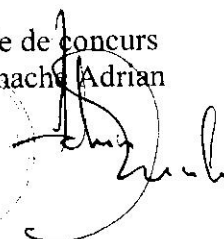 e de concurs
mache Adrian